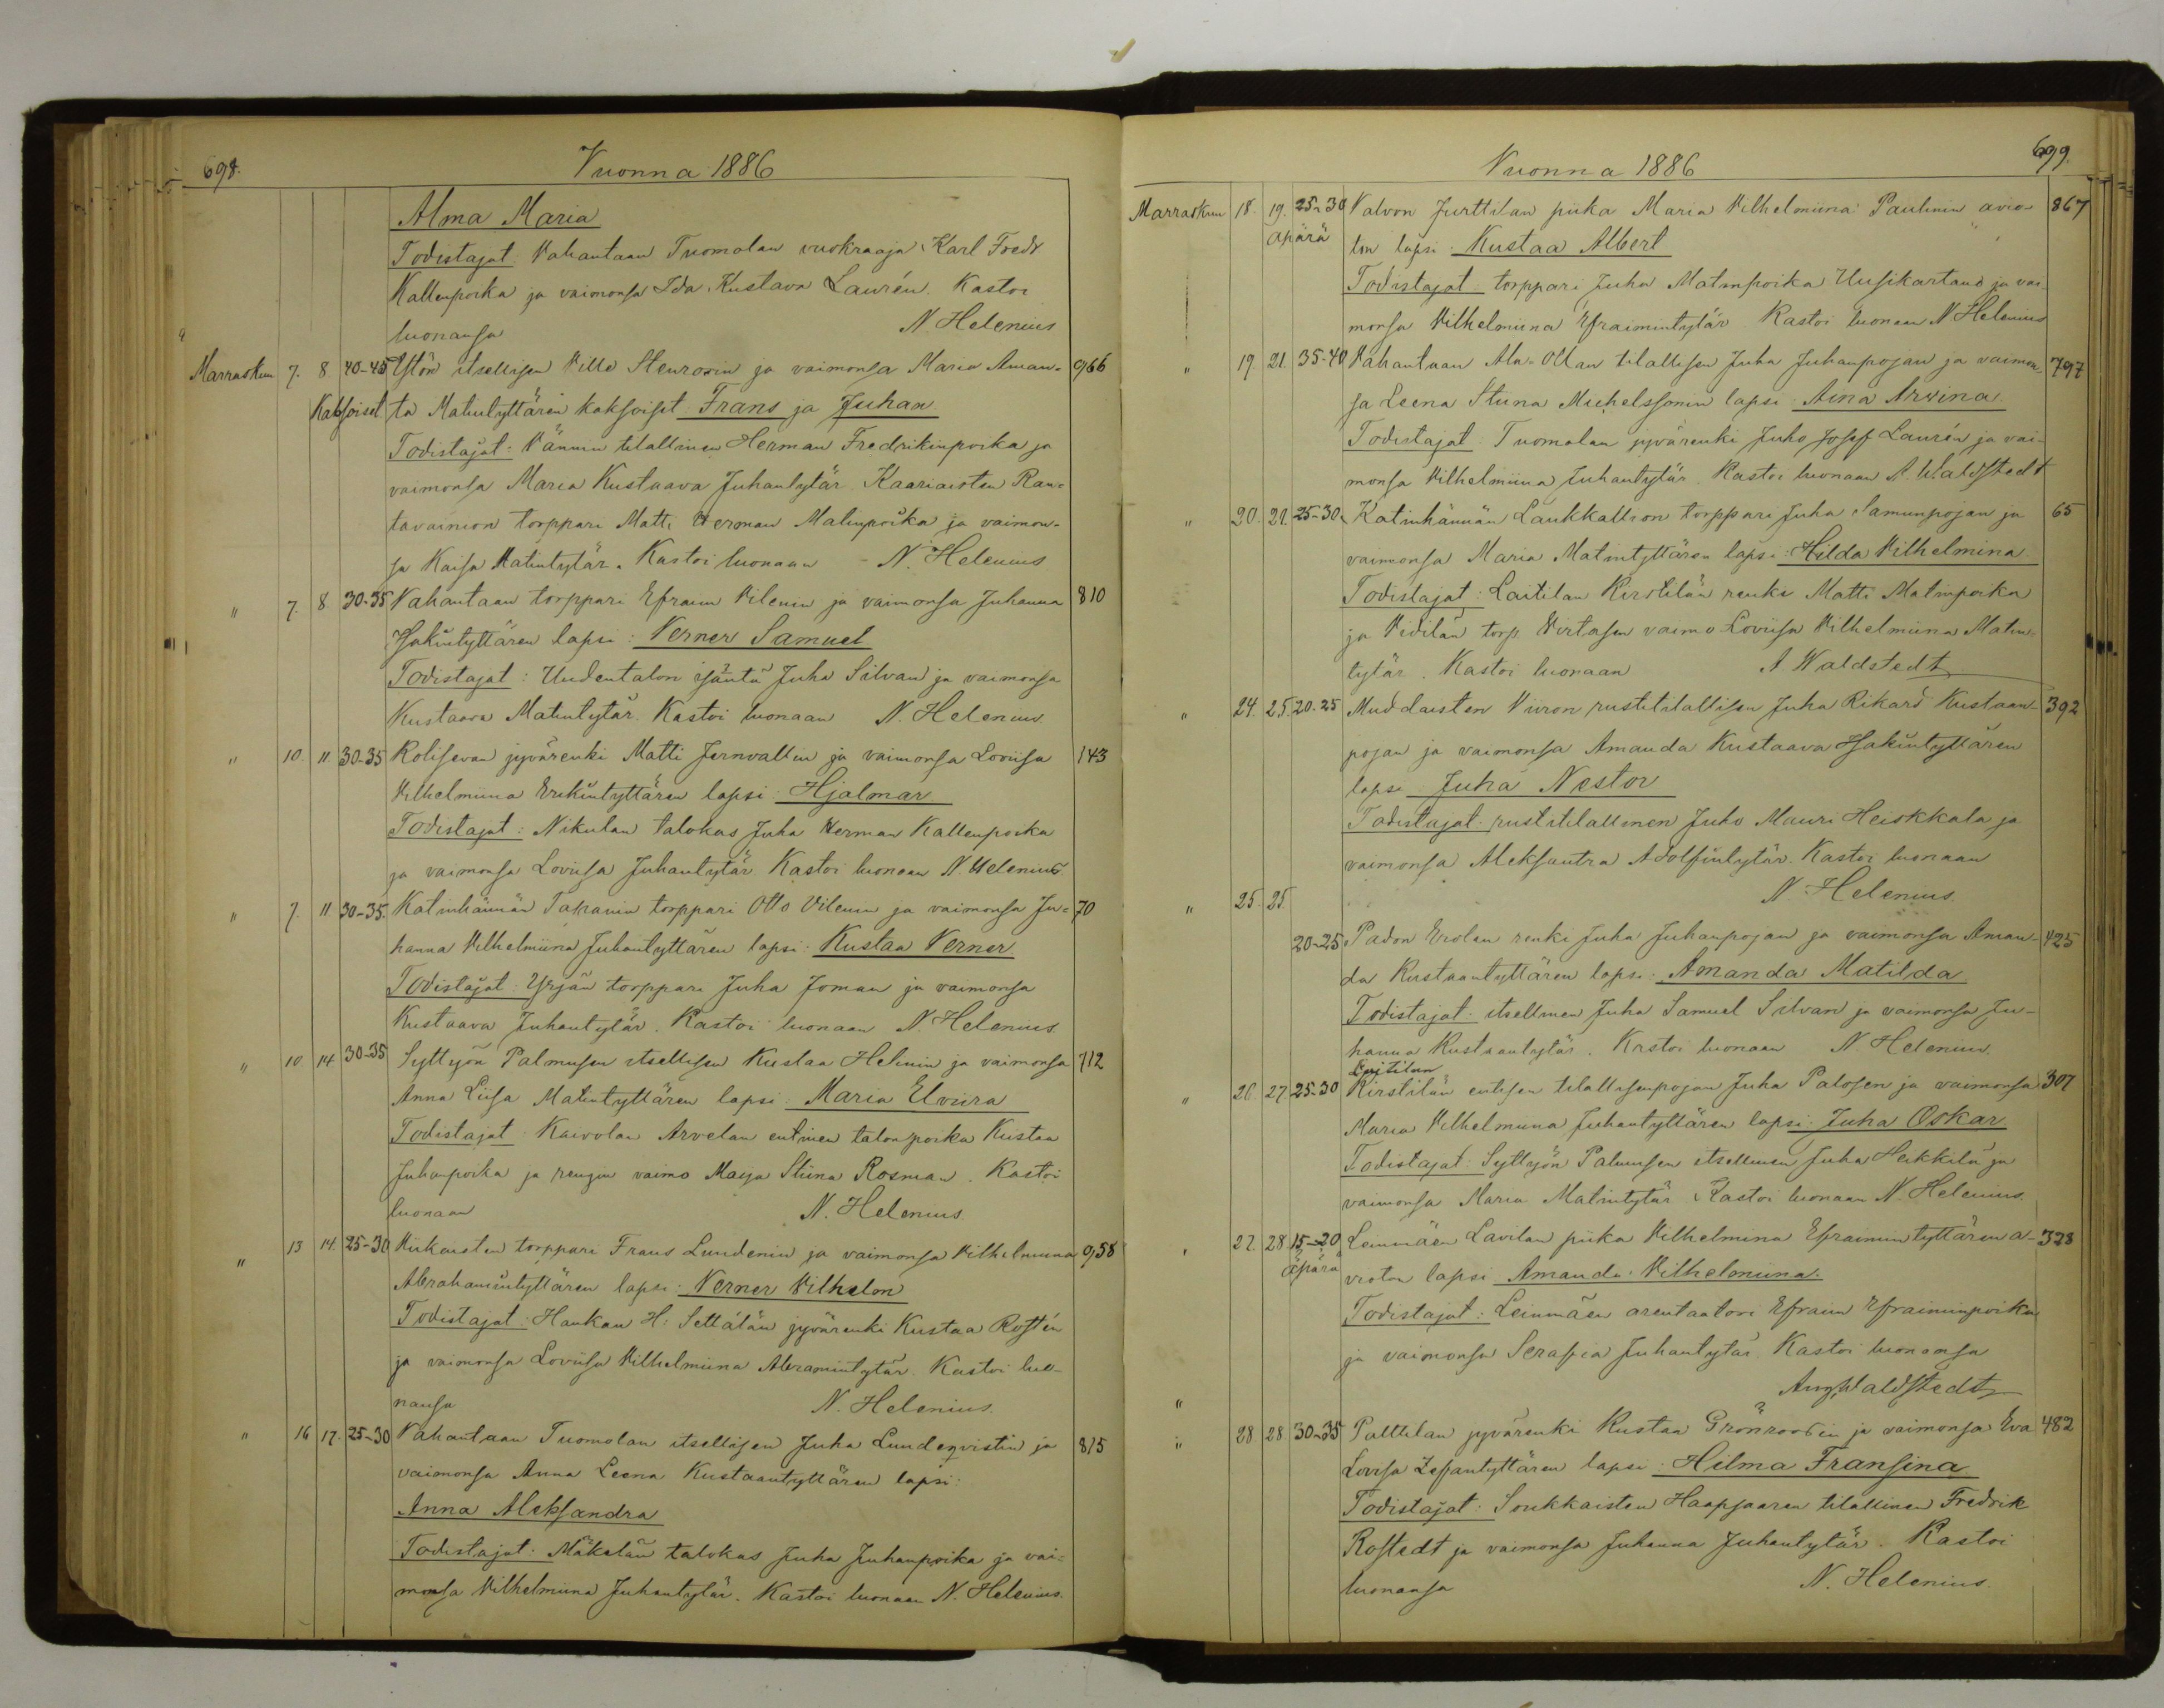 698.
Vuonna 1886
Alma Maria
Todistajat: Vahantaan Tuomolan vuokraaja Karl Fredr
Kallenpoika ja vaimonsa Ida Kustava Laurén. Kastoi
luonansa N. Helenius
Marraskun 7. 8 40-45 itsellisen Ville Stenrosin ja vaimonsa Maria Aman- 966
Kaksoiset ta Matintyttären kaksoiset Frans ja Juhan
Todistajat: Männin tilallinen Herman Fredrikinpoika ja
vaimonsa Maria Kustaava Juhantytär Kaariaisten Ran-
tavainion torppari Matti Herman Matinpoika ja vaimon-
sa Kaisa Matintytär. Kastoi luonaan N. Helenius
" 7. 8 30-35 Vahantaan torppari Efraim Vilenin ja vaimonsa Juhanna 810
Isakintyttären lapsi: Verner Samuel
Todistajat: Uudentalon isäntä Juha Silvan ja vaimonsa
Kustaava Matintytär. Kastoi luonaan N. Helenius.
" 10. 11 30-35 Kolisevan jyvärenki Matti Jernvallin ja vaimonsa Loviisa 143
Vilhelmiina Erikintyttären lapsi: Hjalmar
Todistajat: Nikulan talokas Juha Herman Kallenpoika
ja vaimonsa Loviisa Juhantytär. Kastoi luonaan N. Helenius
" 7. 11 30-35. Katinhännän Tapanin torppari Otto Vilenin ja vaimonsa Ju- 70
hanna Vilhelmiina Juhantyttären lapsi: Kustaa Verner
Todistajat: Yrjän torppari Juha Joman ja vaimonsa
Kustaava Juhantytär. Kastoi luonaan N. Helenius
" 10 14 30-35 Syttyön Palmusen itsellisen Kustaa Helinin ja vaimonsa 712
Anna Liisa Matintyttären lapsi: Maria Elviira
Todistajat: Kaivolan Arvelan entinen talonpoika Kustaa
Juhanpoika ja rengin vaimo Maija Stiina Rosman. Kastoi
luonaan N. Helenius.
" 13 14. 25-30 torppari Frans Lundenin ja vaimonsa Vilhelmiina 958
Abrahamintyttären lapsi: Verner Vilhelm
Todistajat: Haukan H: Settälän jyvärenki Kustaa Rostén
ja vaimonsa Loviisa Vilhelmiina Abramintytär. Kastoi luo-
nansa N. Helenius.
" 16 17. 25-30 Vahantaan Tuomolan itsellisen Juha Lundeqvistin ja 815
vaimonsa Anna Leena Kustaantyttären lapsi:
Anna Aleksandra
Todistajat: Mäkelän talokas Juha Juhanpoika ja vai-
monsa Vilhelmiina Juhantytär. Kastoi luonaan N. Helenius.
699.
Vuonna 1886
Marraskun 18. 19. 25-30 Valvon Jurttilan piika Maria Vilhelmiina Paulinin avio- 867
äpärä ton lapsi: Kustaa Albert
Todistajat: torppari Juha Matinpoika Uusikartano ja vai-
monsa Vilhelmiina Efraimintytär. Kastoi luonaan N Helenius
" 19 21. 35-40 Vahantaan Ala-Ollan tilallisen Juha Juhanpojan ja vaimon- 797
sa Leena Stuna Michelssonin lapsi: Aina Arwina
Todistajat: Tuomolan jyvärenki Juho Josef Laurén ja vai-
monsa Vilhelmiina Juhantytär. Kastoi luonaan A. Waldstedt
" 20. 21. 25-30. Katinhännän Laukkallion torppari Juha Samunpojan ja 65
vaimonsa Maria Matintyttären lapsi: Hilda Vilhelmina
Todistajat: Laitilan Kirstilän renki Matti Matinpoika
ja Vidilän torp. Virtasen vaimo Loviisa Vilhelmiina Matin-
tytär. Kastoi luonaan A Waldstedt
" 24. 25. 20-25 Muddaisten Viiron rustitilallisen Juha Rikard Kustaan- 392
pojan ja vaimonsa Amanda Kustaava Isakintyttären
lapsi Juha Nestor
Todistajat: rustitilallinen Juho Mauri Heiskkala ja
vaimonsa Aleksantra Adolfintytär. Kastoi luonaan
N. Helenius.
" 25. 25.
20-25 Padon Erolan renki Juha Juhanpojan ja vaimonsa Aman- 425
da Kustaantyttären lapsi: Amanda Matilda
Todistajat: itsellinen Juha Samuel Silvan ja vaimonsa Ju-
hanna Kustaantytär. Kastoi luonaan N Helenius.
Laitilan
" 26. 27. 25-30 Kirstilän entisen tilallisenpojan Juha Palosen ja vaimonsa 307
Maria Vilhelmiina Juhantyttären lapsi: Juha Oskar
Todistajat: Syttyön Palmusen itsellinen Juha Heikkilä ja
vaimonsa Maria Matintytär. Kastoi luonaan N. Helenius.
" 27. 28 15-20 Leinmäen Lavilan piika Vilhelmina Efraimintyttären a- 328
äpärä vioton lapsi Amanda Vilhelmiina.
Todistajat: Leinmäen arentaatori Efraim Efraiminpoika
ja vaimonsa Serafia Juhantytär. Kastoi luonansa
" Aug. Waldstedt
" 28 28 30-35 Palttilan jyvärenki Kustaa Grönroosin ja vaimonsa Eva 482
Lovisa lapsi: Hilma Fransina
Todistajat: Soukkaisten Haapsaaren tilallinen Fredrik
Rostedt ja vaimonsa Juhanna Juhantytär. Kastoi
luonansa N. Helenius.